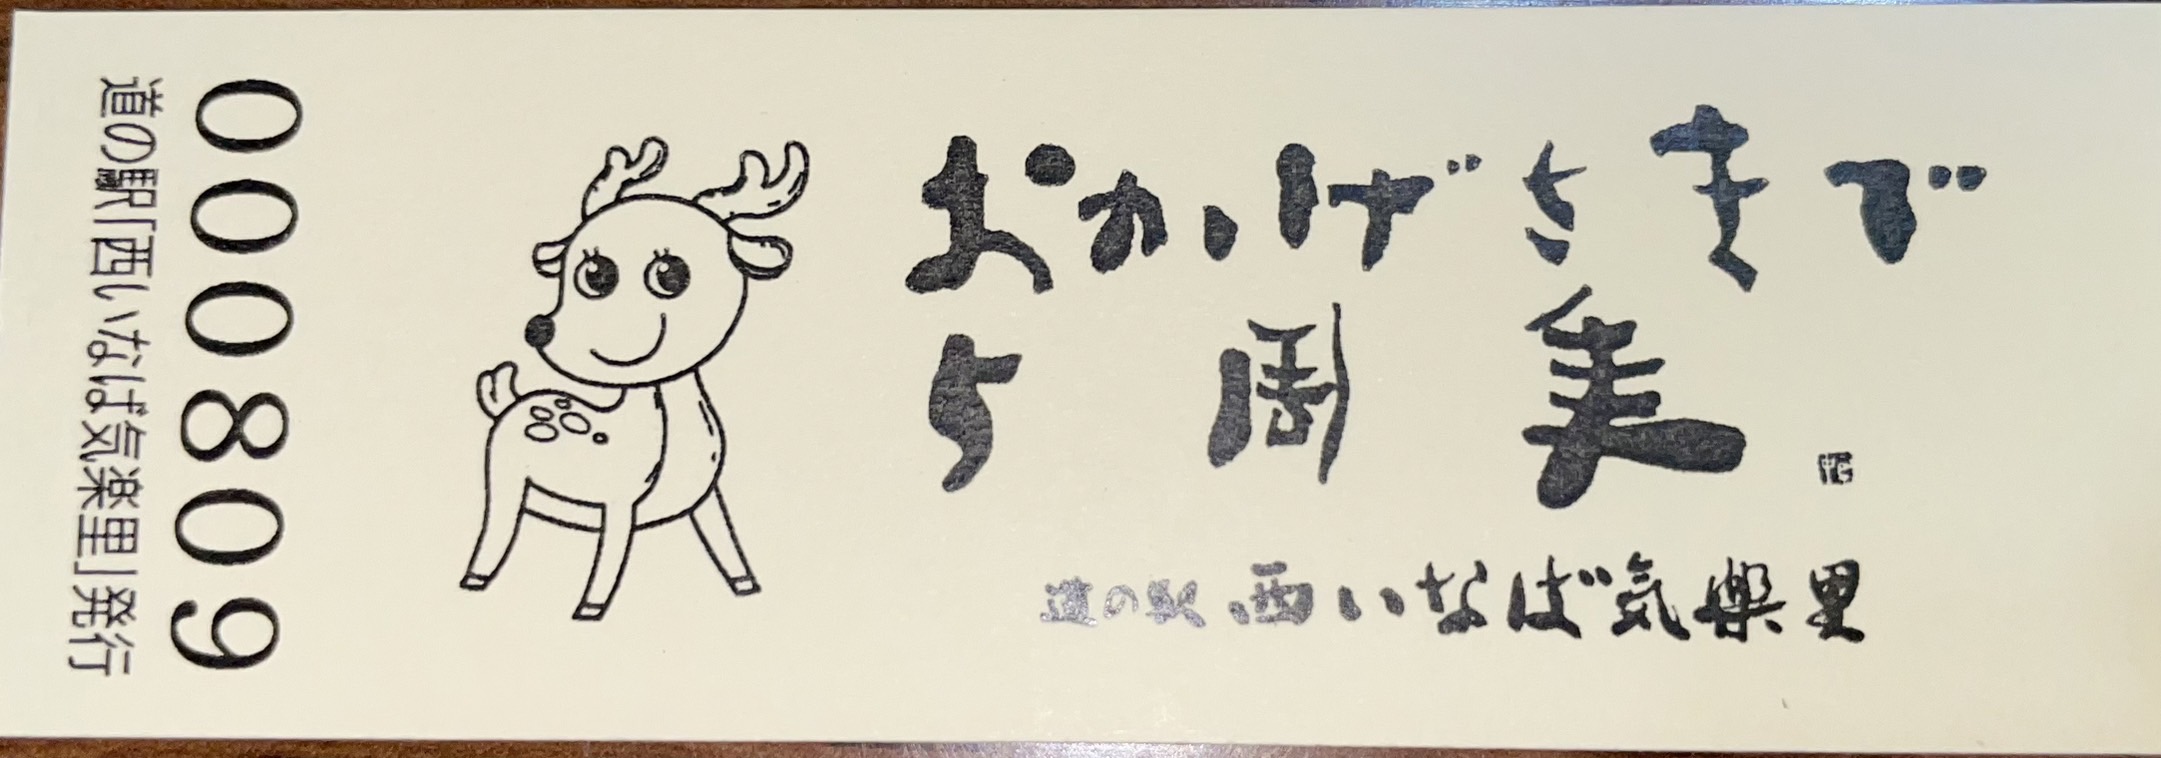 おかげさまで
5周年
道の駅 西いなば気楽里
000809
道の駅「西いなば気楽里」発行